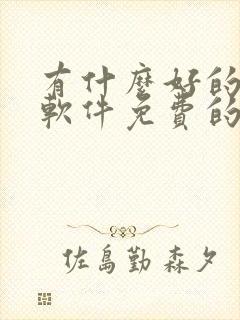 有什麼好的
軟件免費的
佐島勤 森夕